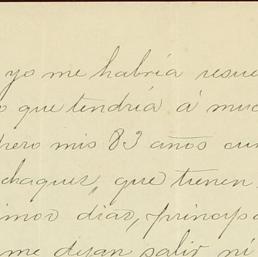 yo me habría resue
o que tendría á muc
pero mis 83 años cum
chaques, que tienen
imos dias, principa
me dejan salir ni